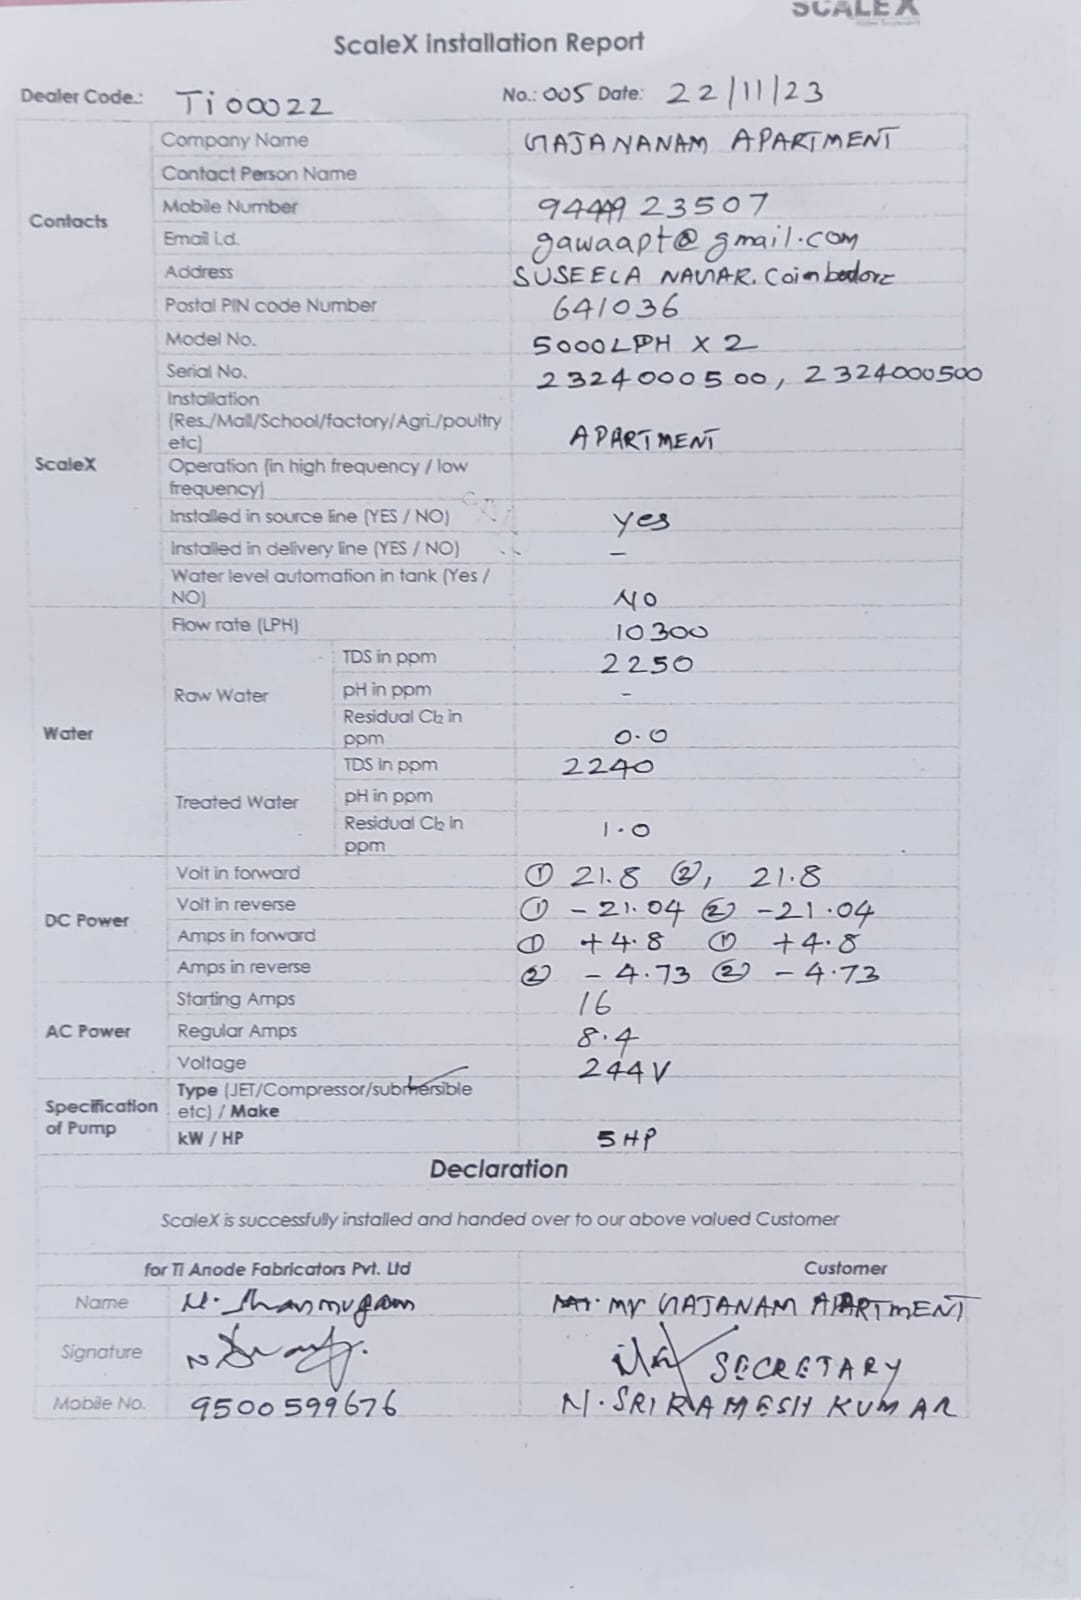 SCALEX
ScaleX Installation Report
Dealer Code.: Ti 00022 No.: 005 Date: 22/11/23
Contacts
Company Name GAJANANAM APARTMENT
Contact Person Name
Mobile Number 23507
Email i.d. gawaapt@gmail.com
Address SUSEELA NAGAR. Coimbatore
Postal PIN code Number 641036
ScaleX
Model No. 5000LPH X 2
Serial No. 2324000500, 2324000500
Installation
(Res./Mall/School/factory/Agri./poultry
etc) APARTMENT
Operation (in high frequency / low
frequency)
Installed in source line (YES / NO) yes
Installed in delivery line (YES / NO) -
Water level automation in tank (Yes /
NO) NO
Water
Flow rate (LPH) 10300
Raw Water
TDS in ppm 2250
pH in ppm -
Residual Cl2 in
ppm 0.0
Treated Water
TDS in ppm 2240
pH in ppm
Residual Cl2 in
ppm 1.0
DC Power
Volt in forward ① 21.8 ②, 21.8
Volt in reverse ① -21.04 ② -21.04
Amps in forward ① +4.8 ① +4.8
Amps in reverse ② -4.73 ② -4.73
AC Power
Starting Amps 16
Regular Amps 8.4
Voltage 244V
Specification
of Pump
Type (JET/Compressor/submersible
etc) / Make
kW / HP 5 HP
Declaration
ScaleX is successfully installed and handed over to our above valued Customer
for Ti Anode Fabricators Pvt. Ltd Customer
Name N. Shanmugam GAJANAM APARTMENT
Signature SECRETARY
Mobile No. 9500599676 N. SRI RAMESH KUMAR